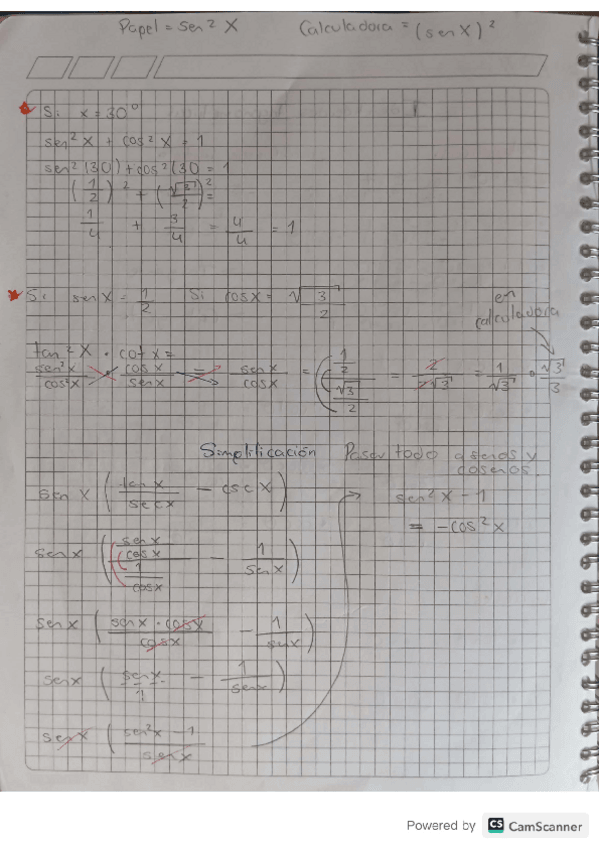 Papel = sen² x   Calculadora = (sen x)²
Si x = 30°
sen² x + cos² x = 1
sen² (30) + cos² (30 = 1
(1/2)² + (√3/2)² =
1/4 + 3/4 = 4/4 = 1
Si sen x = 1/2   Si cos x = √3/2
en calculadora
tan² x · cot x =
sen² x/cos² x · cos x/sen x = sen x/cos x = (1/2)/(√3/2) = 2/2√3 = 1/√3 o √3/3
Simplificación   Pasar todo a senos y cosenos.
sen x (tan x/sec x - csc x)
sen x ((sen x/cos x)/(1/cos x) - 1/sen x)
sen x (sen x · cos x/cos x - 1/sen x)
sen x (sen x/1 - 1/sen x)
sen x (sen² x - 1/sen x)
sen² x - 1
= -cos² x
Powered by CS CamScanner